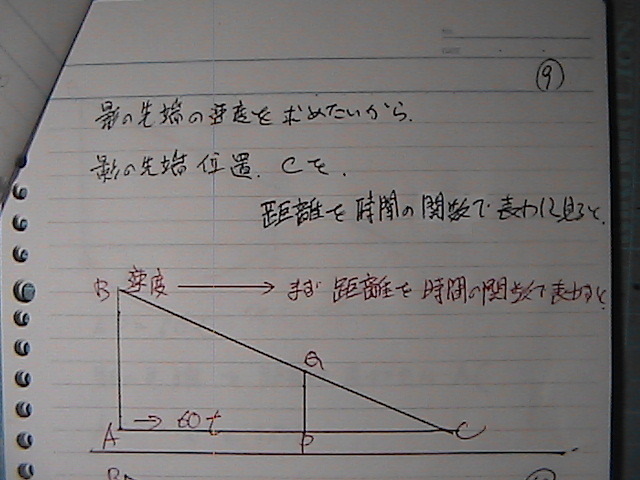 ⑨
影の先端の速度を求めたいから.
影の先端位置. Cを.
距離を時間の関数で表わして見ると.
B 速度 → まず 距離を時間の関数で表わすと
Q
A → 60t P C
B